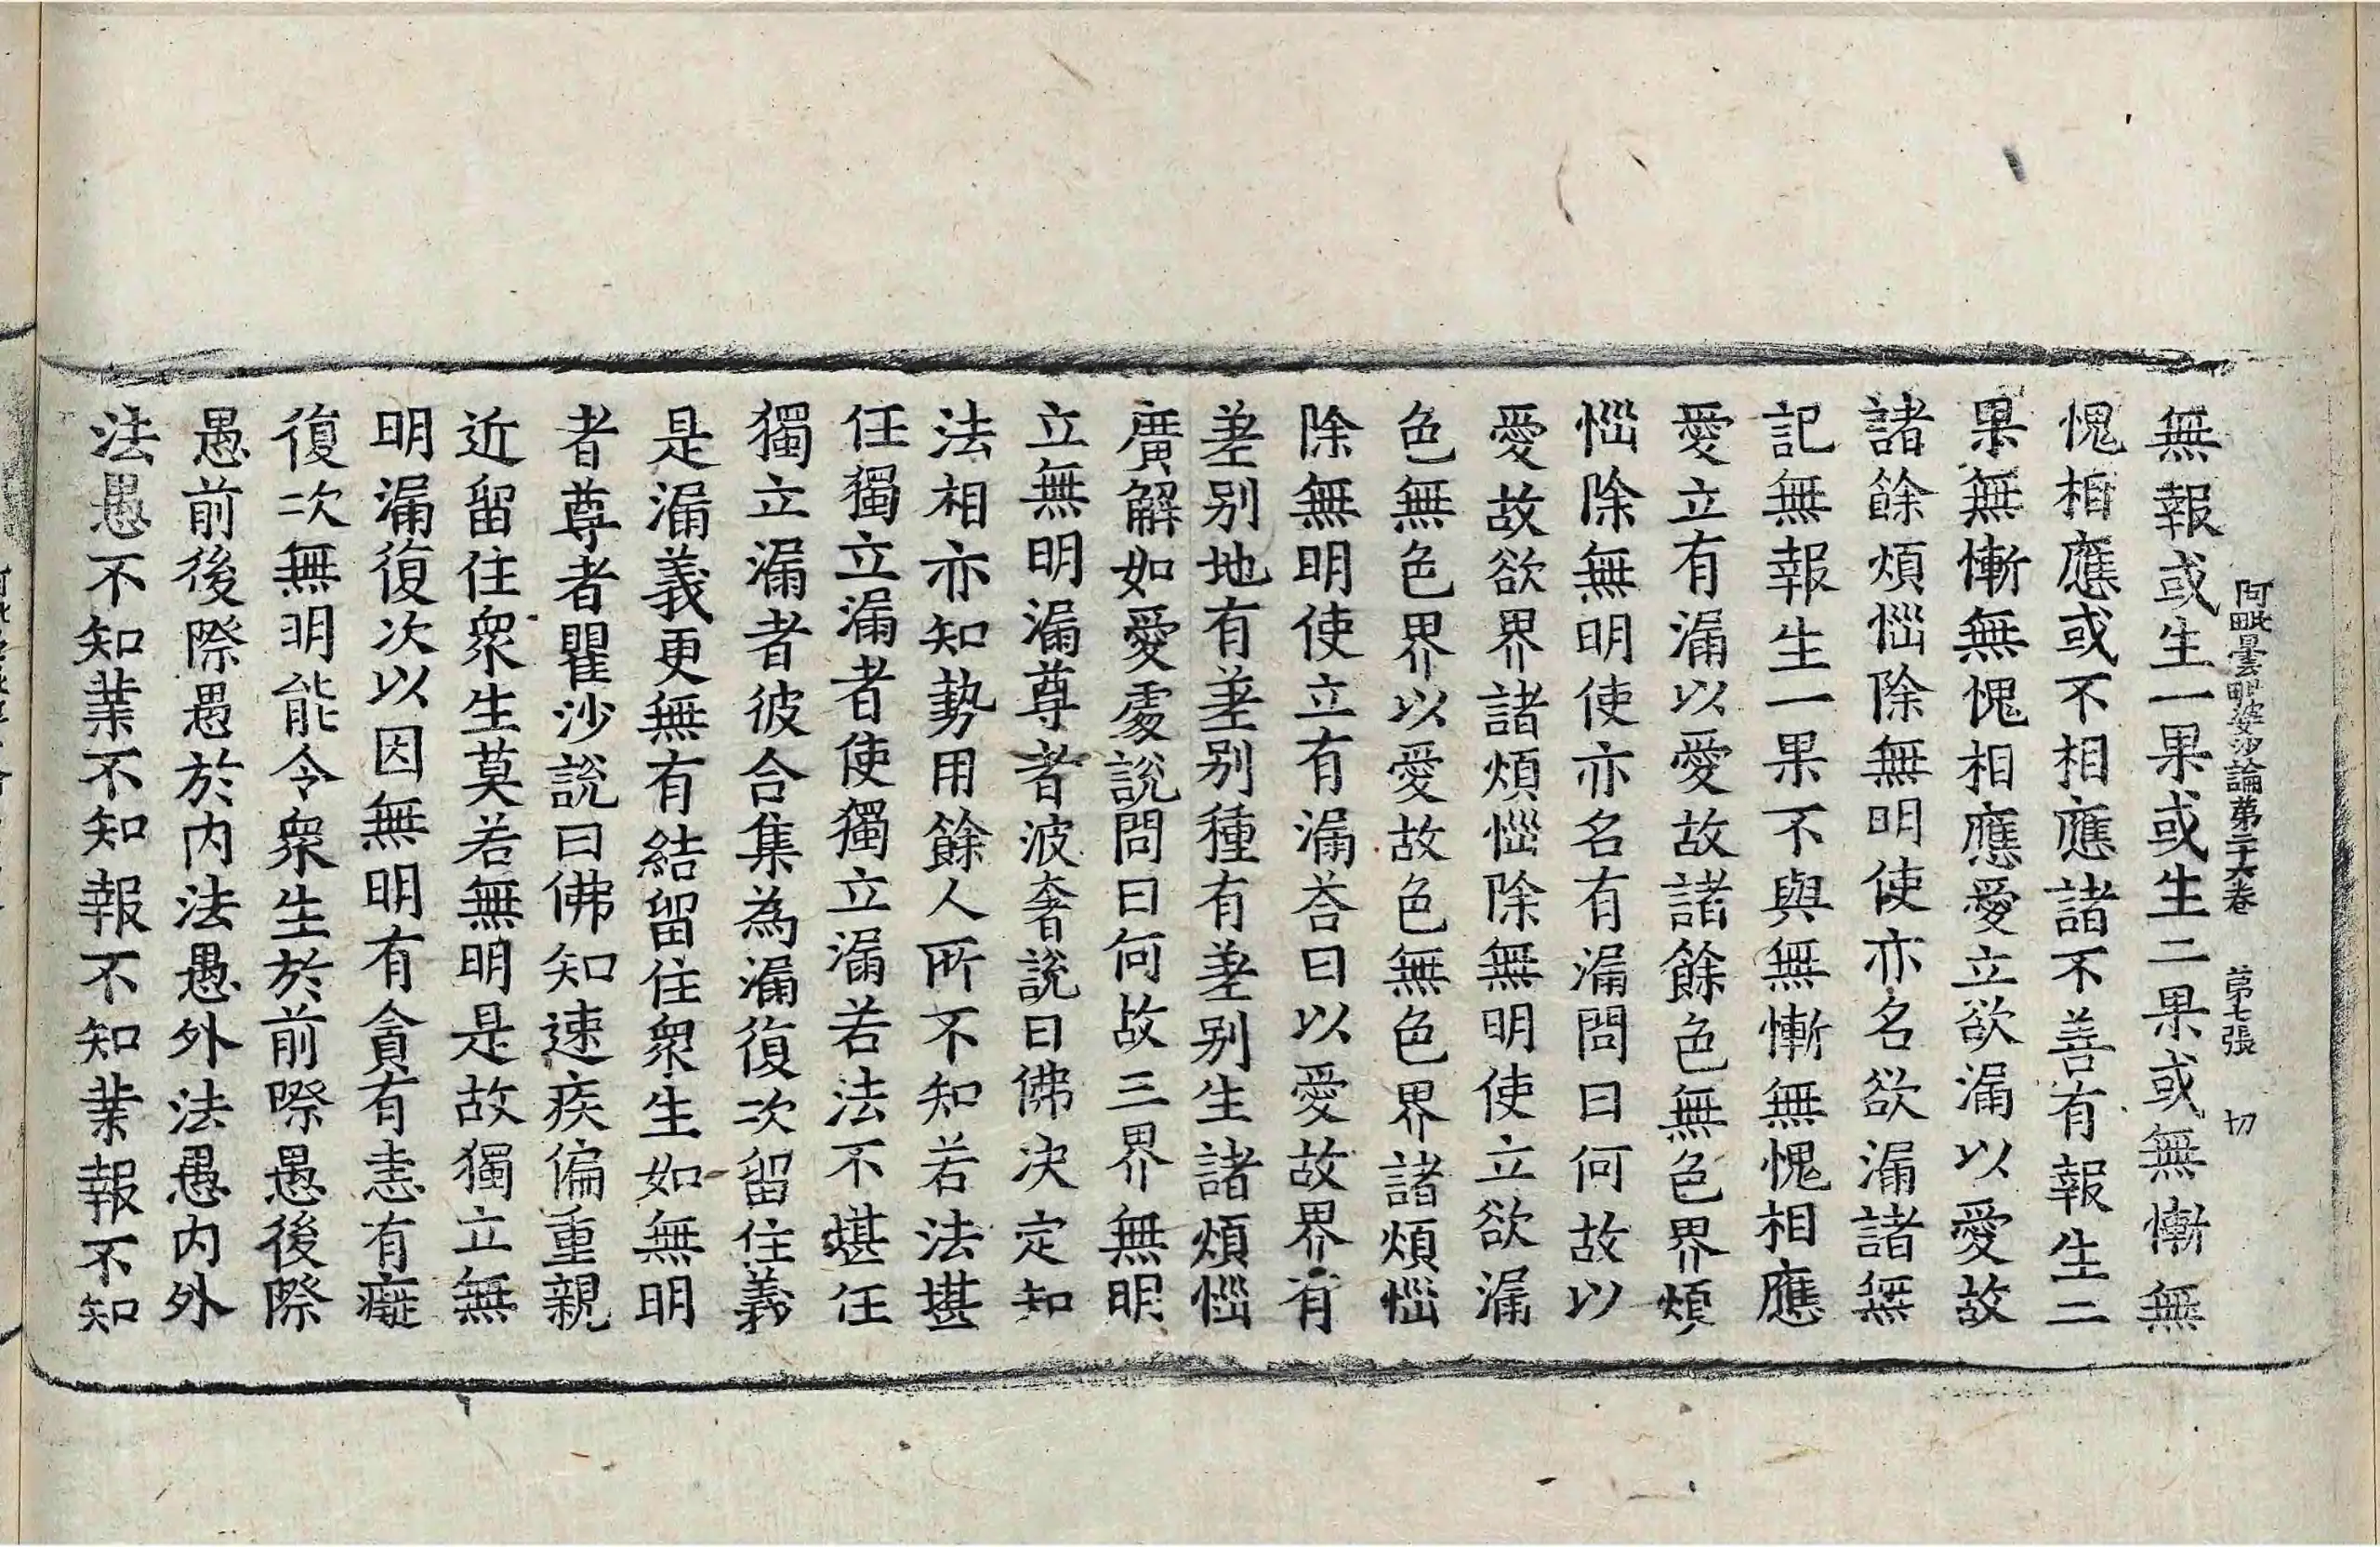 阿毗曇毗婆沙論第二十六卷　第七張　切
無報或生一果或生二果或無慚無
愧相應或不相應諸不善有報生二
果無慚無愧相應愛立欲漏以愛故
諸餘煩惱除無明使亦名欲漏諸無
記無報生一果不與無慚無愧相應
愛立有漏以愛故諸餘色無色界煩
惱除無明使亦名有漏問曰何故以
愛故欲界諸煩惱除無明使立欲漏
色無色界以愛故色無色界諸煩惱
除無明使立有漏荅曰以愛故界有
差別地有差別種有差別生諸煩惱
廣解如愛處說問曰何故三界無明
立無明漏尊者波奢說曰佛決定知
法相亦知勢用餘人所不知若法堪
任獨立漏者使獨立漏若法不堪任
獨立漏者彼合集為漏復次留住義
是漏義更無有結留住衆生如無明
者尊者瞿沙說曰佛知速疾偏重親
近留住衆生莫若無明是故獨立無
明漏復次以因無明有貪有恚有癡
復次無明能令衆生於前際愚後際
愚前後際愚於内法愚外法愚内外
法愚不知業不知報不知業報不知